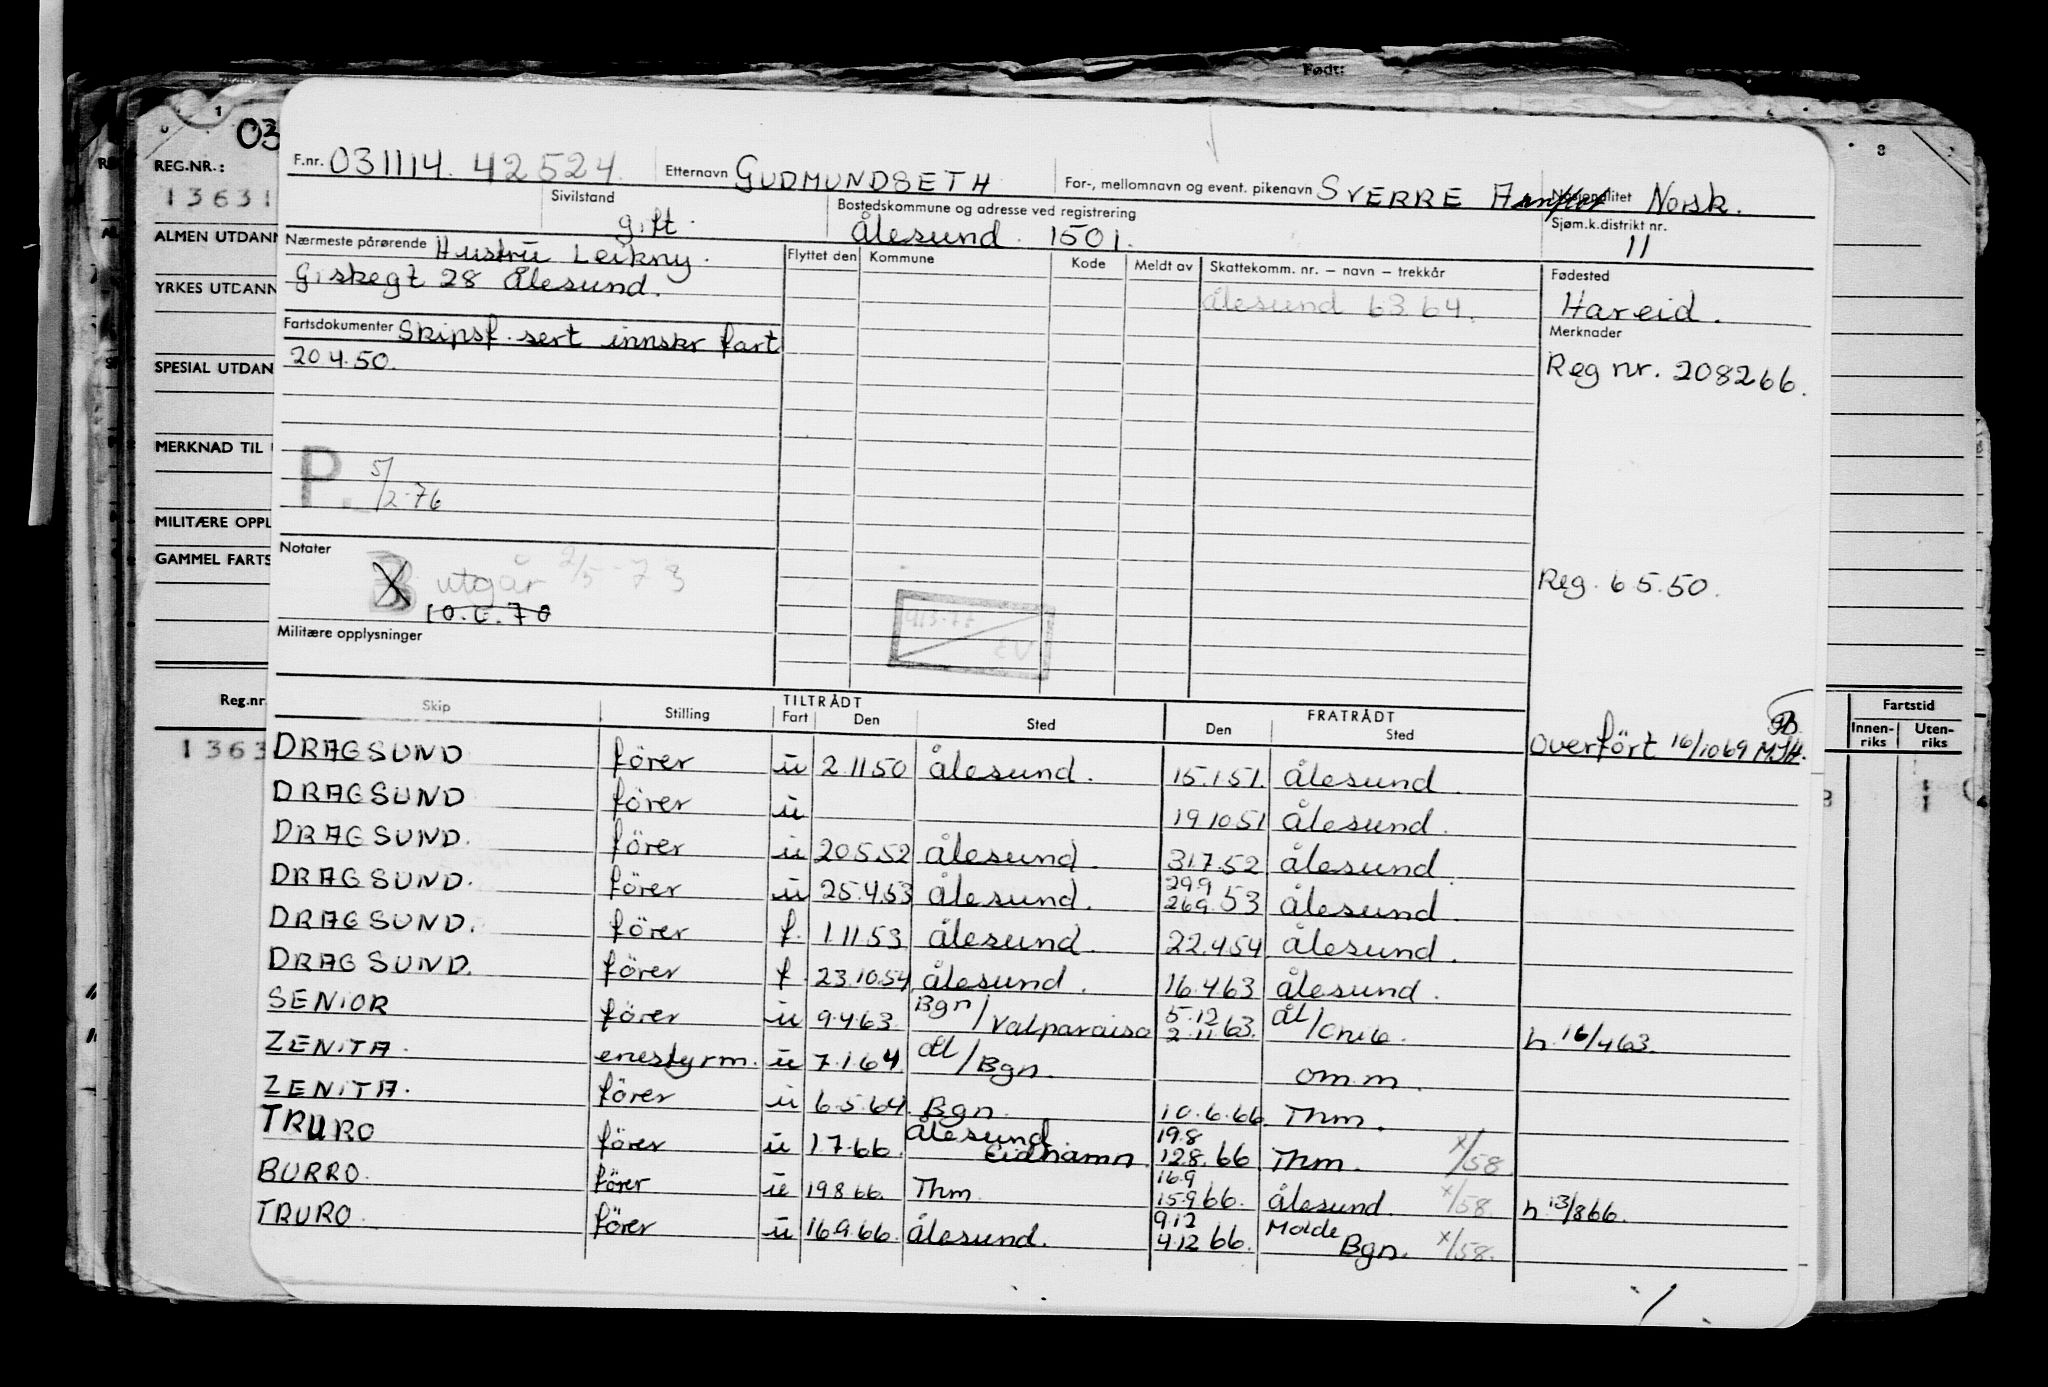 Født:
03
REG.NR.:
13631
ALMEN UTDANN
YRKES UTDANN
SPESIAL UTDAN
MERKNAD TIL
MILITÆRE OPPL
GAMMEL FARTS
Reg.nr.
1363
8
Fartstid
Innen-riks Uten-riks
F.nr. 031114. 42524. Etternavn GUDMUNDSETH For-, mellomnavn og event. pikenavn SVERRE Nasjonalitet Norsk.
Sivilstand gift. Bostedskommune og adresse ved registrering Ålesund. 1501. Sjøm.k.distrikt nr. 11
Nærmeste pårørende Hustru Leikny.
Giskegt 28 Ålesund.
Flyttet den Kommune Kode Meldt av Skattekomm. nr. – navn – trekkår
Ålesund 63 64.
Fødested
Hareid.
Fartsdokumenter Skipsf. sert innskr fart
20.4.50.
Merknader
Reg nr. 208266.
P. 5/2-76
Notater
B utgår 2/5-73
Reg. 6.5.50.
Militære opplysninger
Skip Stilling TILTRÅDT Fart Den Sted FRATRÅDT Den Sted
Overført 16/10 69
DRAGSUND fører u 2.11 50 Ålesund. 15.1.51. Ålesund.
DRAGSUND fører u 19 10 51 Ålesund.
DRAGSUND. fører u 20.5.52 Ålesund. 31.7.52 Ålesund.
DRAGSUND. fører u 25.4.53 Ålesund. 29.9 26.9. 53 Ålesund.
DRAGSUND. fører f. 1.11 53 Ålesund. 22.4.54 Ålesund.
DRAGSUND. fører f. 23.10.54 Ålesund. 16.4.63 Ålesund.
SENIOR fører u 9.4.63. Bgn/Valparaiso 5.12 2.11 63. Ål/ h. 16/4 63.
ZENITA. enestyrm. u 7.1.64 Ål/Bgn. om.m.
ZENITA. fører u 6.5.64 Bgn. 10.6.66 Thm.
TRURO fører u 1.7.66. Ålesund. Eidhamn. 19.8 12.8. 66 Thm. x/58
BURRO. fører u 19 8 66. Thm 16.9 15.9 66. Ålesund. x/58. h. 13/8 66.
TRURO. fører u 16.9.66. Ålesund. 9.12 4.12 66. Molde Bgn. x/58.